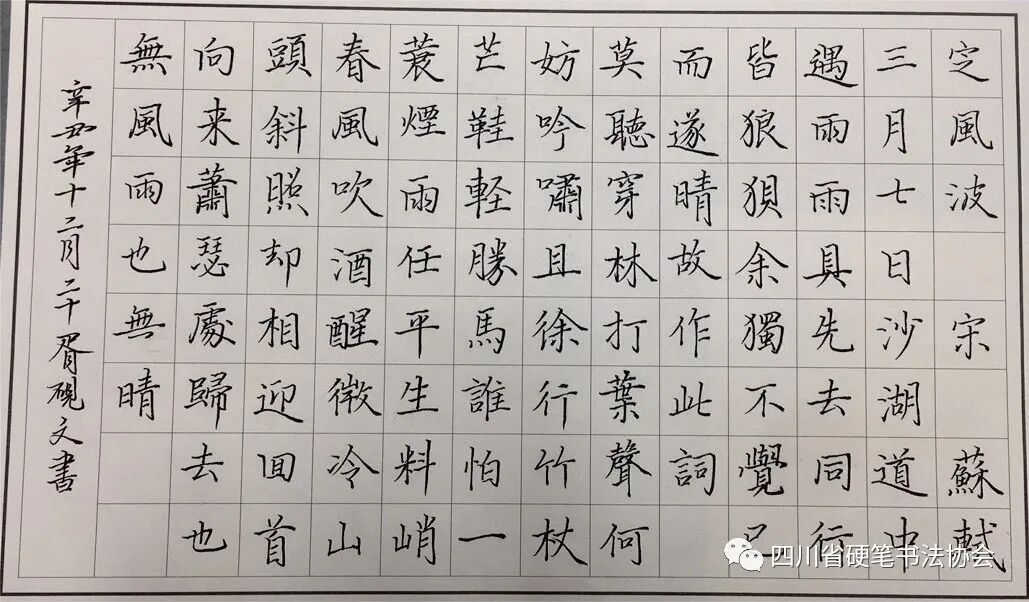 定風波 宋 蘇軾
三月七日沙湖道中
遇雨雨具先去同行
皆狼狽余獨不覺已
而遂晴故作此詞
莫聽穿林打葉聲何
妨吟嘯且徐行竹杖
芒鞋軽勝馬誰怕一
蓑煙雨任平生料峭
春風吹酒醒微冷山
頭斜照却相迎囬首
向来蕭瑟處歸去也
無風雨也無晴
辛丑年十二月二十胥硯文書
四川省硬笔书法协会